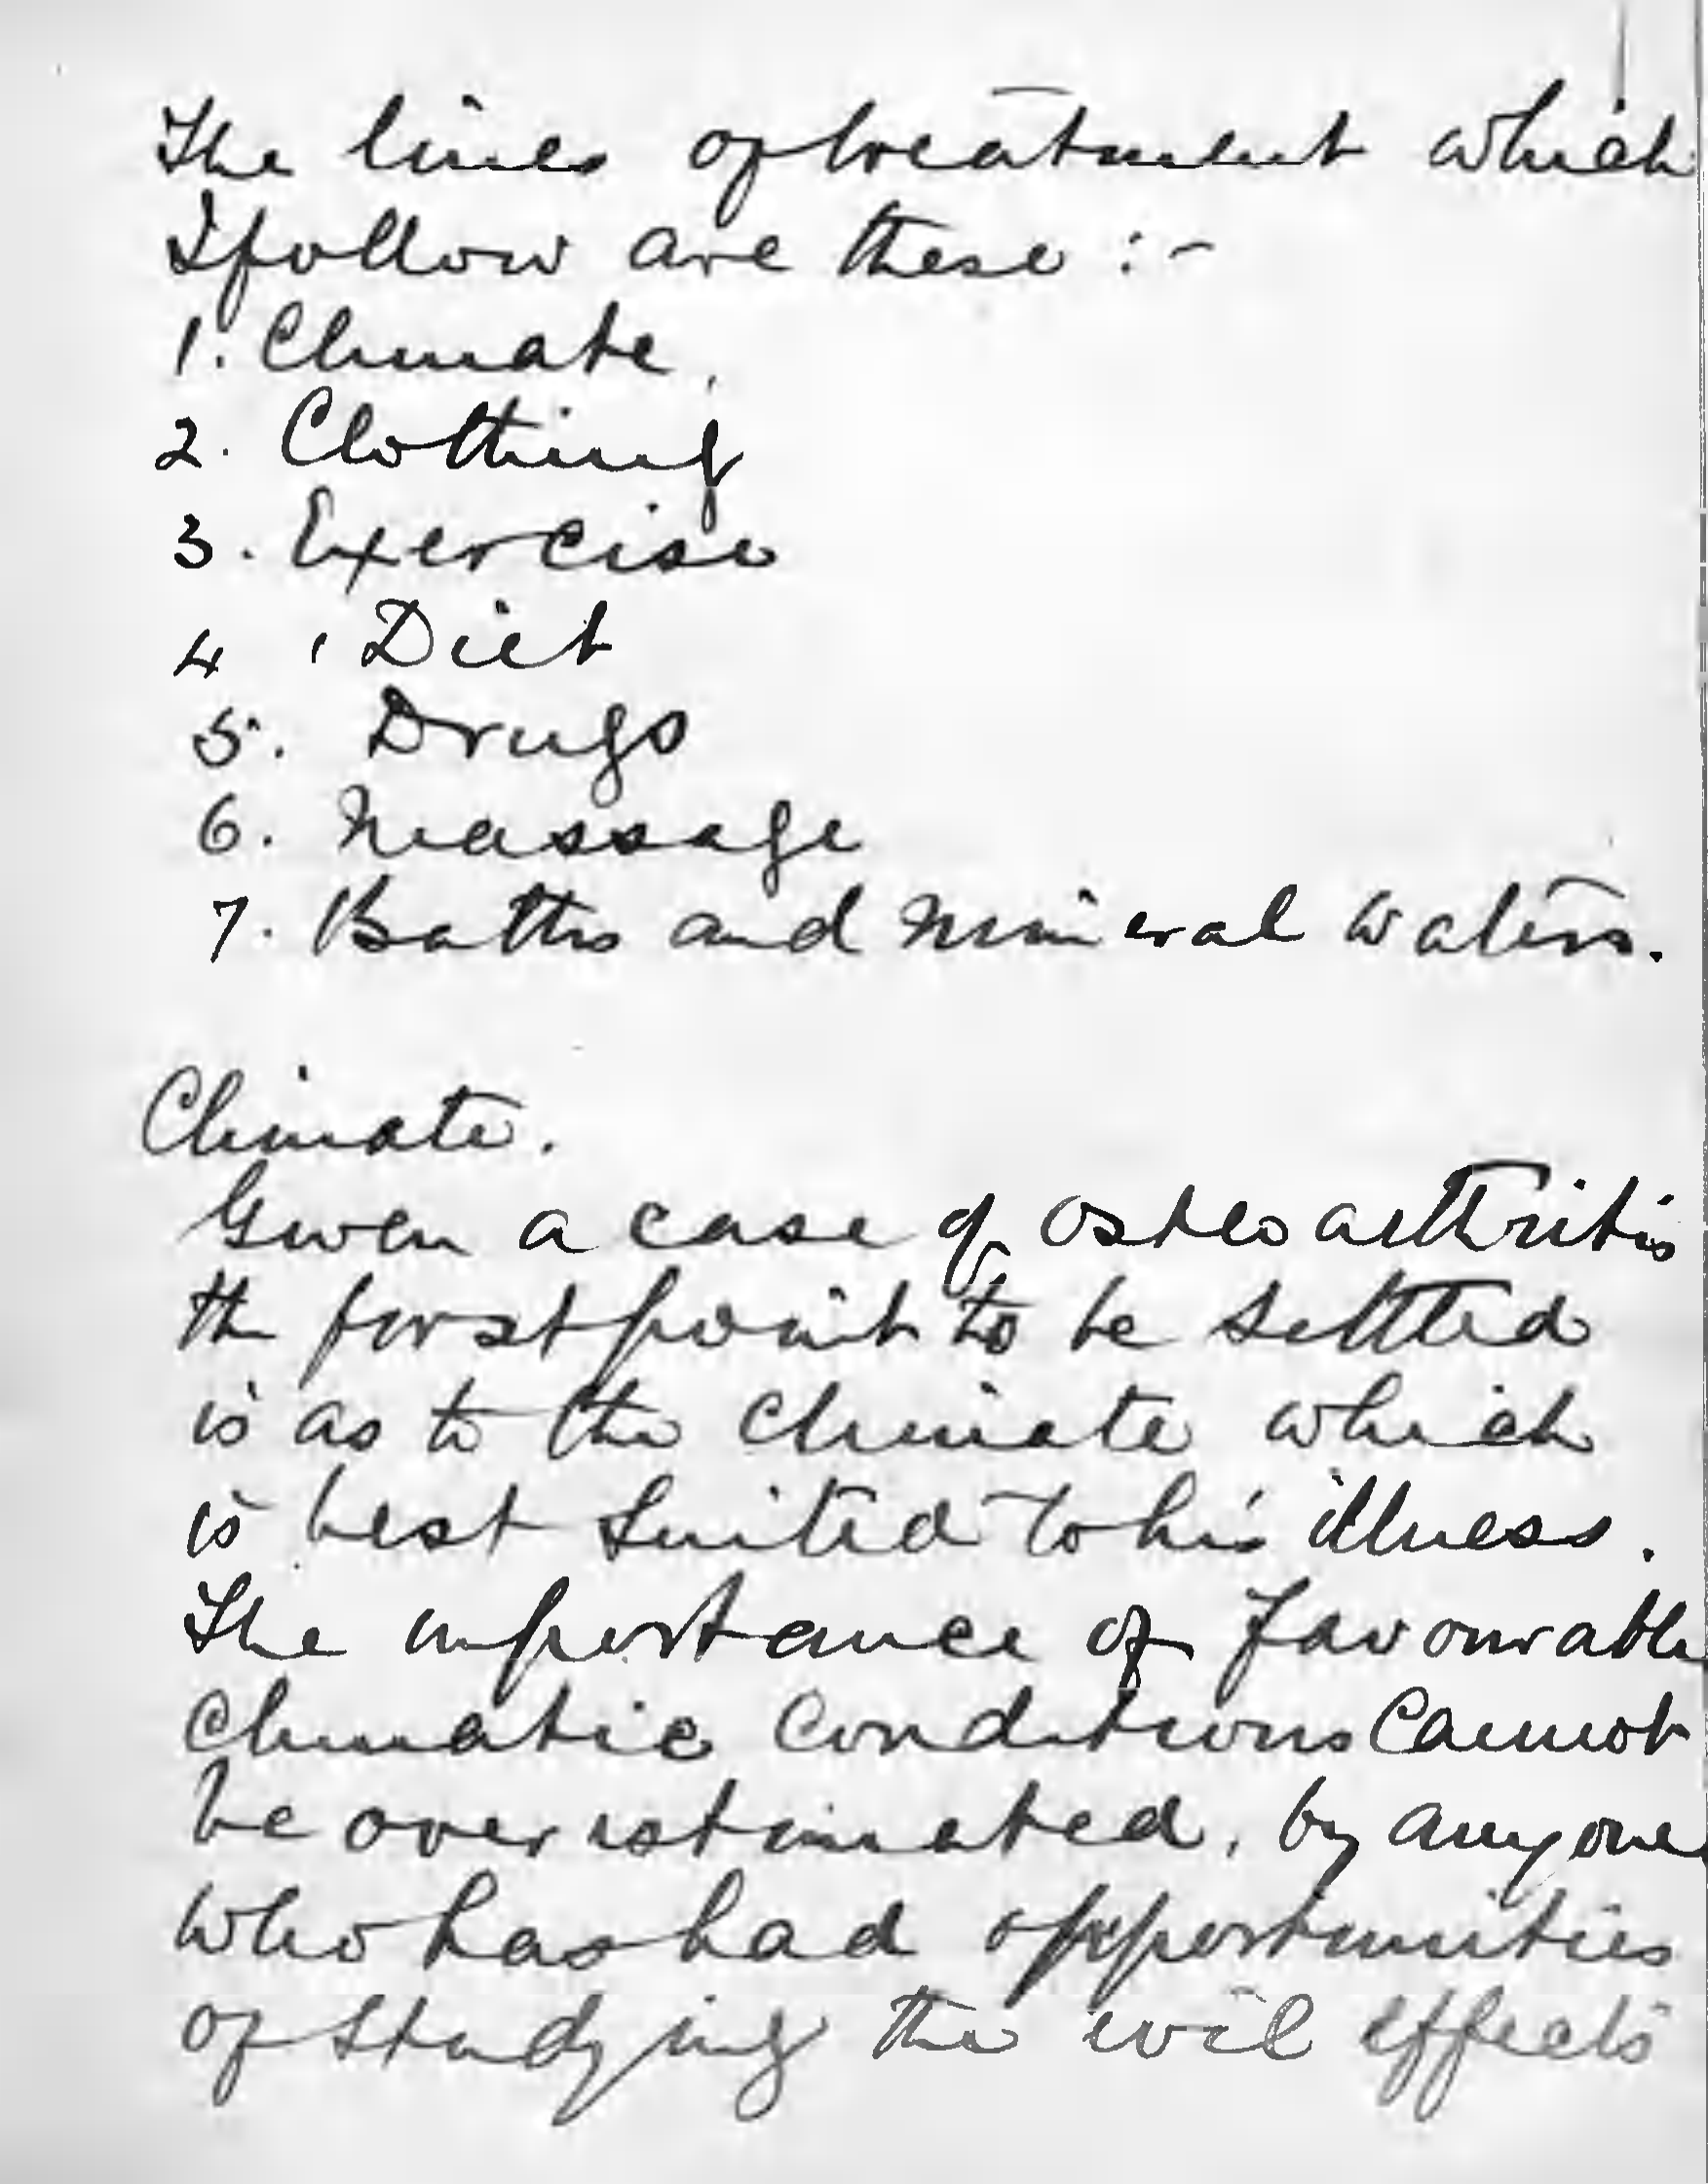 The lines of treatment which
I follow are these :-
1. Climate.
2. Clothing
3. Exercise
4. Diet
5. Drugs
6. Massage
7. Baths and mineral waters.
Climate.
Given a case of osteoarthritis
the first point to be settled
is as to the climate which
is best suited to his illness.
The importance of favourable
climatic conditions cannot
be overestimated, by anyone
who has had opportunities
of studying the evil effects